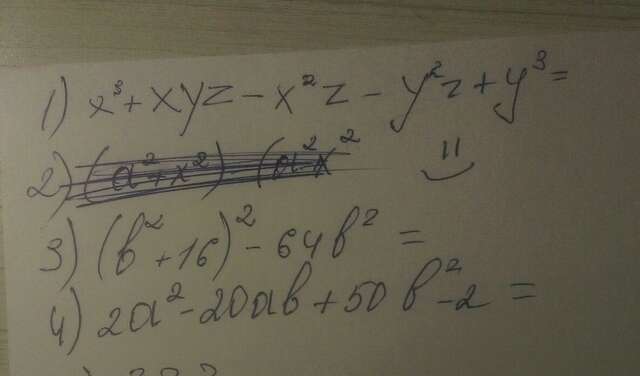 1) x³ + xyz - x²z - y²z + y³ =
2) (a² + x²) - (a²x²
3) (b² + 16)² - 64b² =
4) 2a² - 20ab + 50b² - 2 =